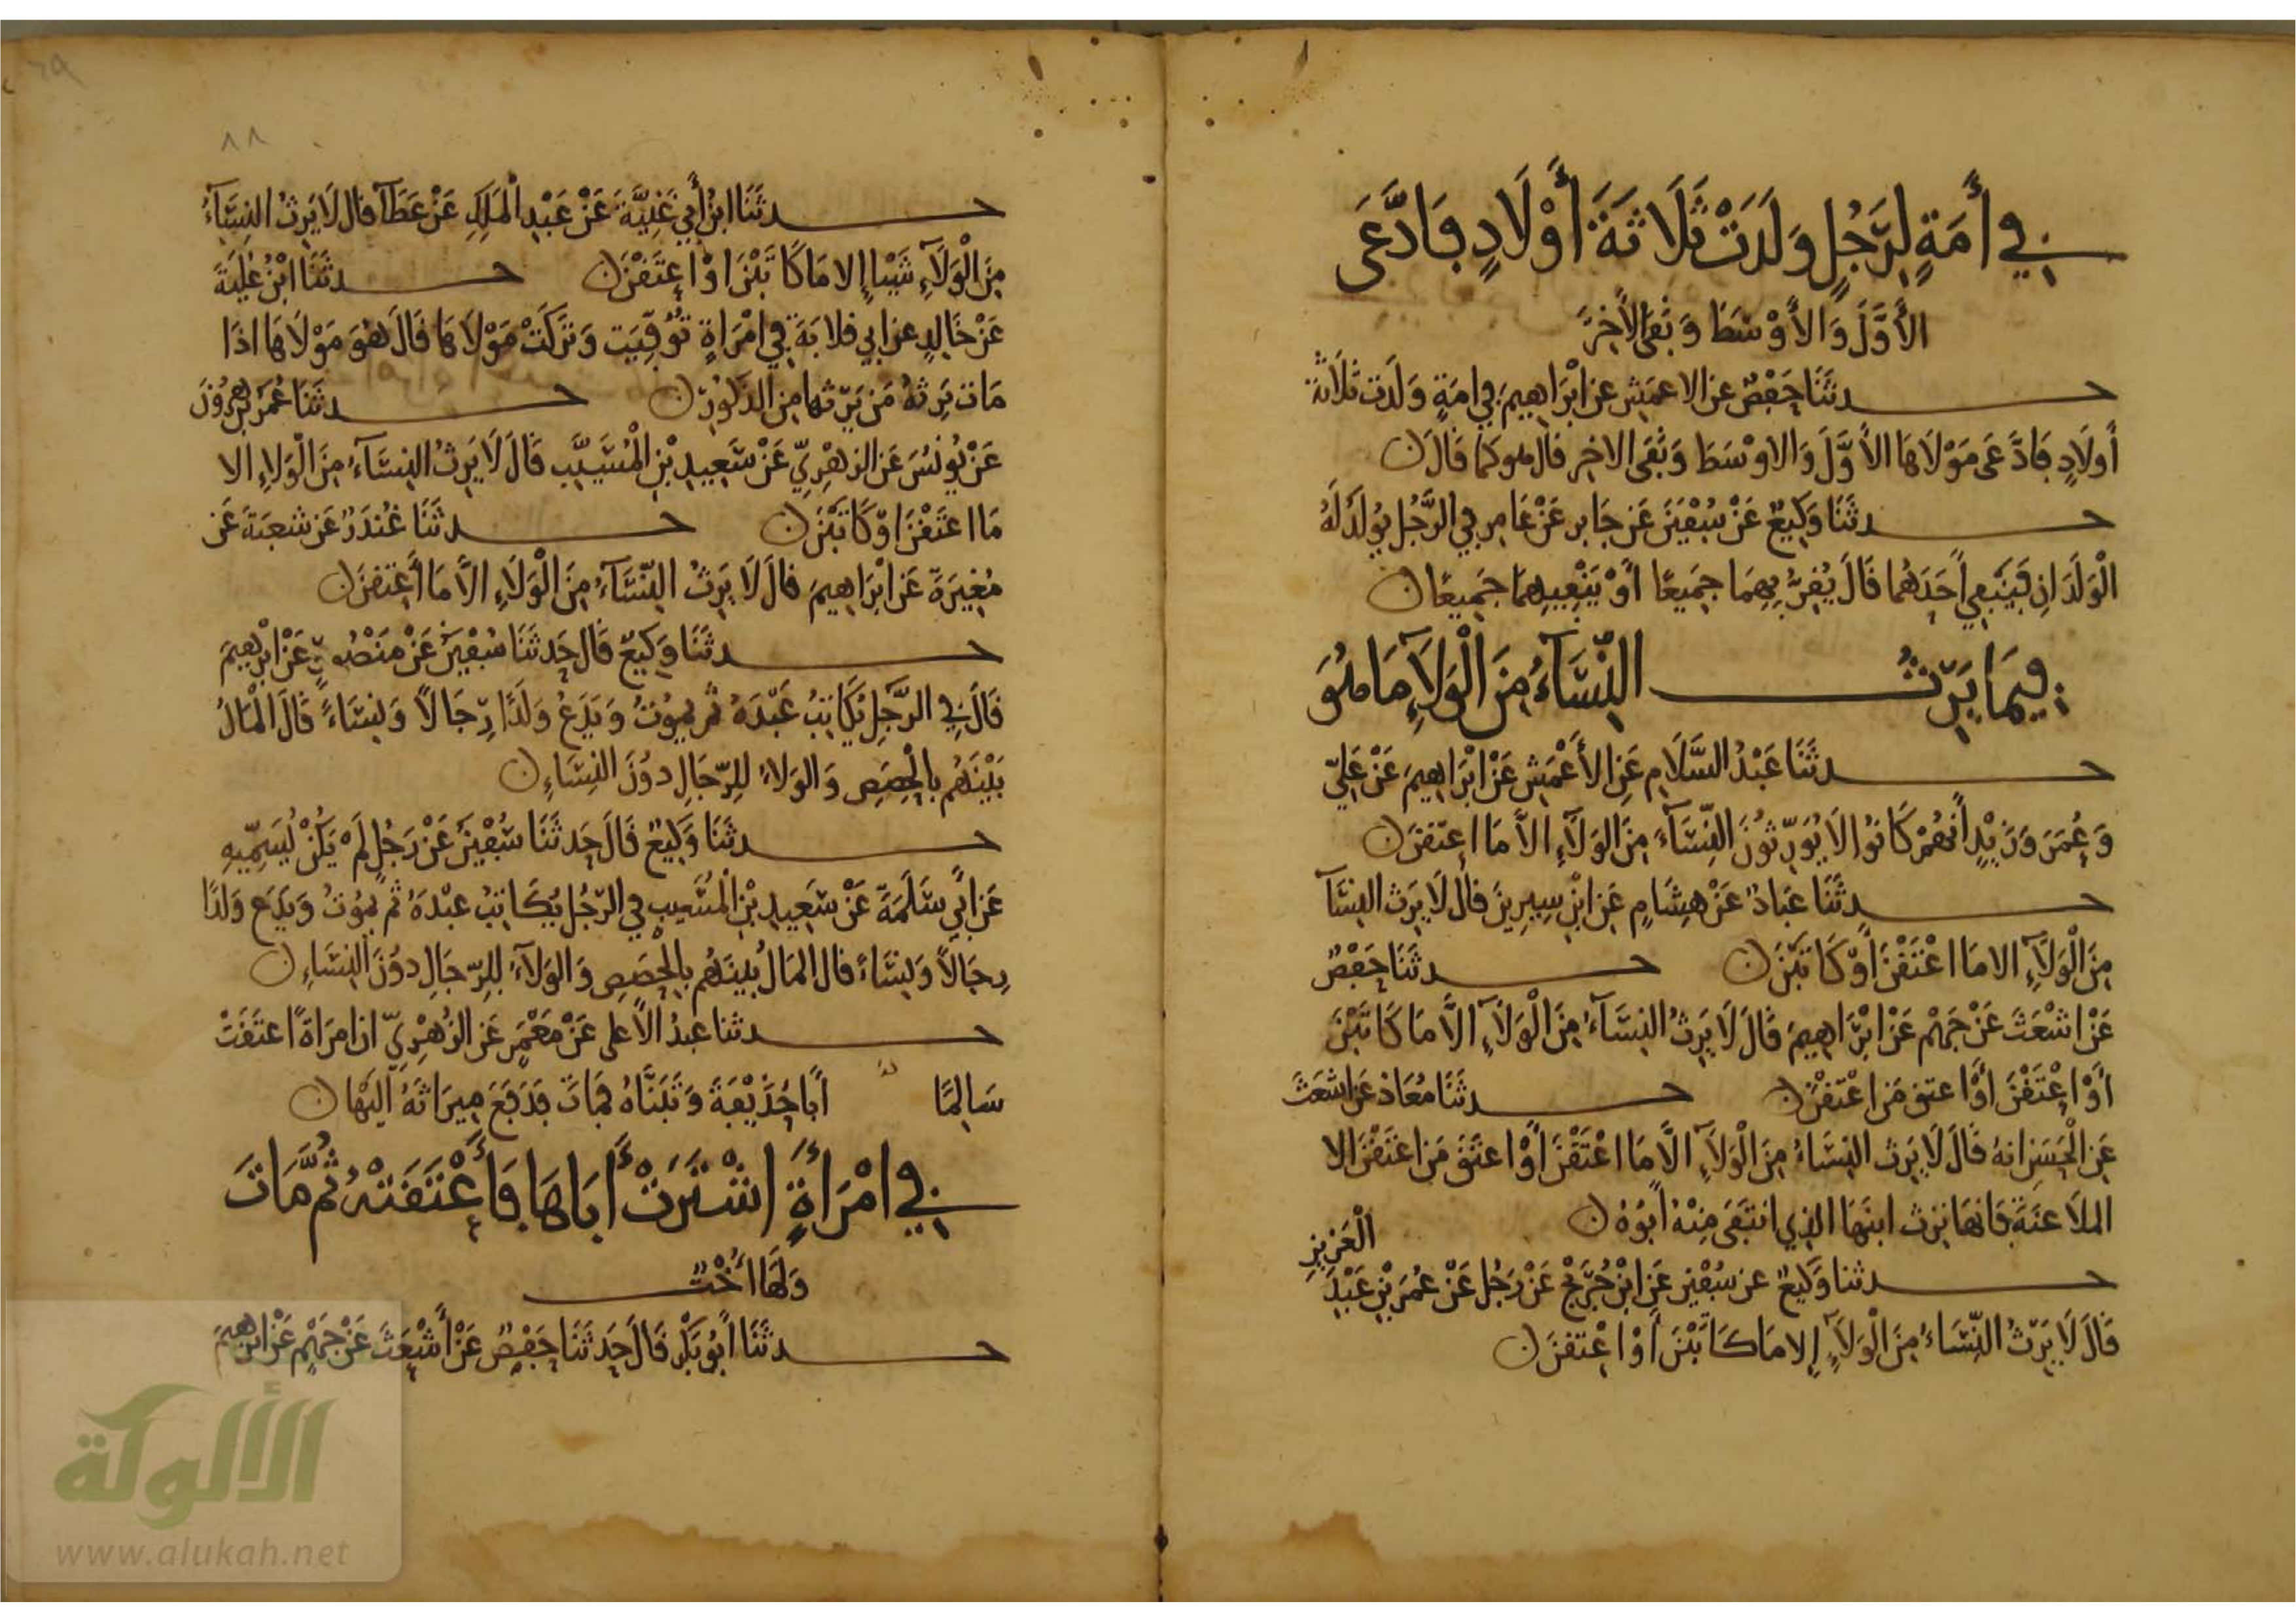 في أَمَةٍ لِرَجُلٍ وَلَدَتْ ثَلَاثَةَ أَوْلَادٍ فَادَّعَى
الأَوَّلَ وَالأَوْسَطَ وَنَفَى الأَخِرَ
حدثَنَا حَفْصٌ عن الاعمَشِ عن ابْرَاهِيمَ في امَةٍ وَلَدَت ثَلَاثَةَ
أَولَادٍ فَادَّعَى مَوْلَاهَا الأَوَّلَ وَالاوْسَطَ وَنَفَى الاخِر قال هو كما قَالَ
حدثَنَا وَكِيعٌ عَنْ سُفْيَنَ عَن جَابر عَنْ عَامِر في الرَّجُلِ يُولَدُ لَهُ
الْوَلَدَانِ فَيَنْفِي أَحَدَهُمَا قَالَ يُقِرُّ بِهِمَا جَمِيعًا أَوْ يَنْفِيهِمَا جَمِيعًا
فِيمَا يَرِثُ النِّسَاءُ مِنَ الْوَلَآءِ مَا هُوَ
حدثَنَا عَبْدُ السَّلَامِ عَنِ الأَعْمَشِ عَنْ ابْرَاهِيمَ عَنْ عَلِيّ
وَعُمَرَ وَزَيْدٍ أَنهُمْ كَانُوا لَا يُوَرِّثُونَ النِّسَاءَ مِنَ الوَلَآءِ الاَّ مَا اعتقنَ
حدثَنَا عَبَادٌ عَنْ هِشَامٍ عَنِ ابْنِ سِيرِينَ قال لَا يَرِث النِسَآءُ
مِنَ الْوَلَآءِ الا مَا اعْتَقْنَ أَوْ كَاتَبْنَ حدثَنَا حَفْصٌ
عَنْ اشْعَثَ عَنْ جَهْم عَنْ ابْرَاهِيمَ قَالَ لَا يَرِثُ النِسَآءُ مِنَ الْوَلَآءِ الاَّ مَا كَاتَبْنَ
أَوْ اعْتَقْنَ أَوْ اعتق مَن اعْتَقْنَ حدثَنَا مُعَاذ عَن اشعَثَ
عَنِ الْحَسَنِ انهُ قَالَ لَا يَرِث النِسَاءُ مِنَ الْوَلَآءِ الاَّ مَا اعْتَقْنَ أَوْ اعتَقَ مَن اعْتَقْنَ الا
الملَاعَنَةَ فَانهَا تَرِث ابنَهَا الذِي انتَفَى مِنْهُ ابُوهُ
حدثنا وَكِيعٌ عن سُفْيَن عَن ابْنِ جُرَيْجٍ عَنْ رَجُلٍ عَنْ عُمَرَ بْنِ عَبْدِ الْعَزِيزِ
قَالَ لَا يَرِثُ النِّسَاءُ مِنَ الْوَلَآءِ إلا مَا كَاتَبْنَ أَوْ اعْتقنَ
٨٨
حدثَنَا ابنُ أَبِي غَنِيَّةَ عَنْ عَبْدِ الْمَلِكِ عَنْ عَطَآ قال لَا يَرِثُ النِسَآءُ
مِنَ الْوَلَآءِ شَيْئا إلا مَا كَاتَبْنَ اوْ اعتَقْنَ حدثَنَا ابْنُ عُلَيَةَ
عَنْ خَالِدٍ عن ابي قلابَةَ في امْرَاةٍ تُوُفِيَت وَتَرَكَتْ مَوْلَاهَا قَالَ هُوَ مَوْلَاهَا اذَا
مَات يَرِثهُ مَن يَرِثهَا مِن الذكُورِ حدثَنَا عُمَرُ بْنُ هرُونَ
عَنْ يُونُسَ عَنِ الزهْرِيّ عَنْ سَعِيدِ بْنِ الْمُسَيِّب قَالَ لَا يَرِثُ النِسَآءُ مِنَ الْوَلَاءِ الا
مَا اعتَقْنَ اوْ كَاتَبْنَ حدثَنَا غُنْدَرٌ عَن شعبَةَ عَن
مُغِيرَةَ عَن ابْرَاهِيمَ قالَ لَا يَرِثُ النِّسَآءُ مِنَ الْوَلَاءِ الاَّ مَا أَعتقنَ
حدثَنَا وَكِيعٌ قَال حَدثَنَا سُفْيَنُ عَنْ مَنْصُورٍ عَنْ ابْرهِيمَ
قَالَ في الرَّجُلِ يُكَاتِبُ عَبْدَهُ ثم يمُوتُ وَيَدَعُ وَلَدًا رِجَالاً وَنِسَاءً قَالَ الْمَالُ
بَيْنَهُم بالْحِصَصِ وَالوَلاءُ لِلرِّجَالِ دوُنَ النِسَاءِ
حدثَنَا وَكِيعٌ قَالَ حَدثَنَا سُفْيَنُ عَنْ رَجُلٍ لَمْ يَكُنْ يُسَمِّيهِ
عَن أَبي سَلَمَةَ عَنْ سَعِيدِ بْنِ الْمُسَيب في الرّجُلِ يُكَاتِبُ عبْدَهُ ثم يمُوتُ وَيَدَع وَلَدًا
رِجَالاً وَنِسَاءً قال المَالُ بَينَهُم بالْحِصَصِ وَالوَلآءُ لِلرّجَالِ دوُنَ النِسَاءِ
حدثنا عبدُ الأَعلى عَنْ مَعْمَرٍ عَن الزُهْرِيّ ان امرَاةً اعتَقَتْ
سَالِمًا أَبا حُذَيْفَةَ وَتَبَنَّاهُ فَمَاتَ فَدَفَعَ مِيرَاثَهُ الَيْهَا
في امْرَأَةٍ اشْتَرَتْ أَبَاهَا فَأَعْتَقَتْهُ ثُمَّ مَاتَ
وَلَهَا أُخْتٌ
حدثَنَا أَبُو بَكْرٍ قَالَ حَدثَنَا حَفْصٌ عَنْ أَشْعَثَ عَنْ جَهْمٍ عَنْ ابْرهِيمَ
الألوكة
www.alukah.net